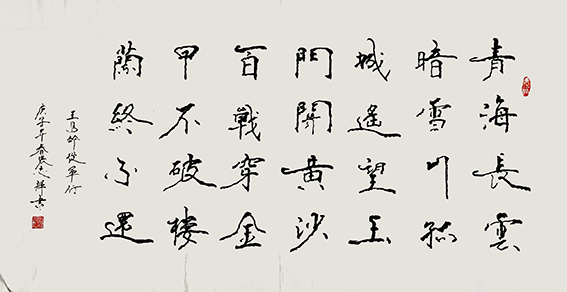 青海長雲
暗雪山孤
城遥望玉
門關黄沙
百戰穿金
甲不破樓
蘭終不還
王昌齡從軍行
庚子年春書